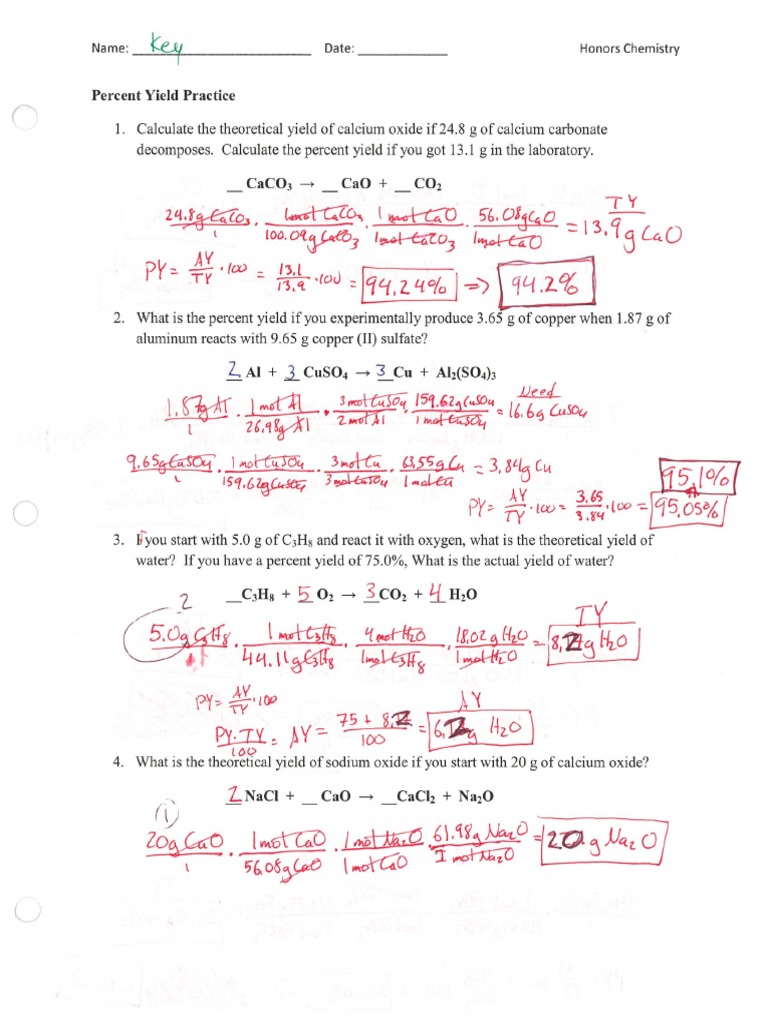 Name: Key Date: Honors Chemistry
Percent Yield Practice
1. Calculate the theoretical yield of calcium oxide if 24.8 g of calcium carbonate
decomposes. Calculate the percent yield if you got 13.1 g in the laboratory.
__ CaCO₃ → __ CaO + __ CO₂
TY
24.8g CaCO₃/1 · 1mol CaCO₃/100.09g CaCO₃ · 1mol CaO/1mol CaCO₃ · 56.08g CaO/1mol CaO = 13.9g CaO
PY = AY/TY · 100 = 13.1/13.9 · 100 = 94.24% => 94.2%
2. What is the percent yield if you experimentally produce 3.65 g of copper when 1.87 g of
aluminum reacts with 9.65 g copper (II) sulfate?
2 Al + 3 CuSO₄ → 3 Cu + Al₂(SO₄)₃
Need
1.87g Al/1 · 1mol Al/26.98g Al · 3mol CuSO₄/2mol Al · 159.62g CuSO₄/1mol CuSO₄ = 16.6g CuSO₄
9.65g CuSO₄/1 · 1mol CuSO₄/159.62g CuSO₄ · 3mol Cu/3mol CuSO₄ · 63.55g Cu/1mol Cu = 3.84g Cu
95.1%
PY = AY/TY · 100 = 3.65/3.84 · 100 = 95.05%
3. If you start with 5.0 g of C₃H₈ and react it with oxygen, what is the theoretical yield of
water? If you have a percent yield of 75.0%, What is the actual yield of water?
__C₃H₈ + 5 O₂ → 3 CO₂ + 4 H₂O
2
TY
5.0g C₃H₈/1 · 1mol C₃H₈/44.11g C₃H₈ · 4mol H₂O/1mol C₃H₈ · 18.02g H₂O/1mol H₂O = 8.2g H₂O
PY = AY/TY · 100
AY
PY·TY/100 = AY = 75 + 8.2/100 = 6.2g H₂O
4. What is the theoretical yield of sodium oxide if you start with 20 g of calcium oxide?
2 NaCl + __ CaO → __CaCl₂ + Na₂O
1
20g CaO/1 · 1mol CaO/56.08g CaO · 1mol Na₂O/1mol CaO · 61.98g Na₂O/1mol Na₂O = 20.g Na₂O